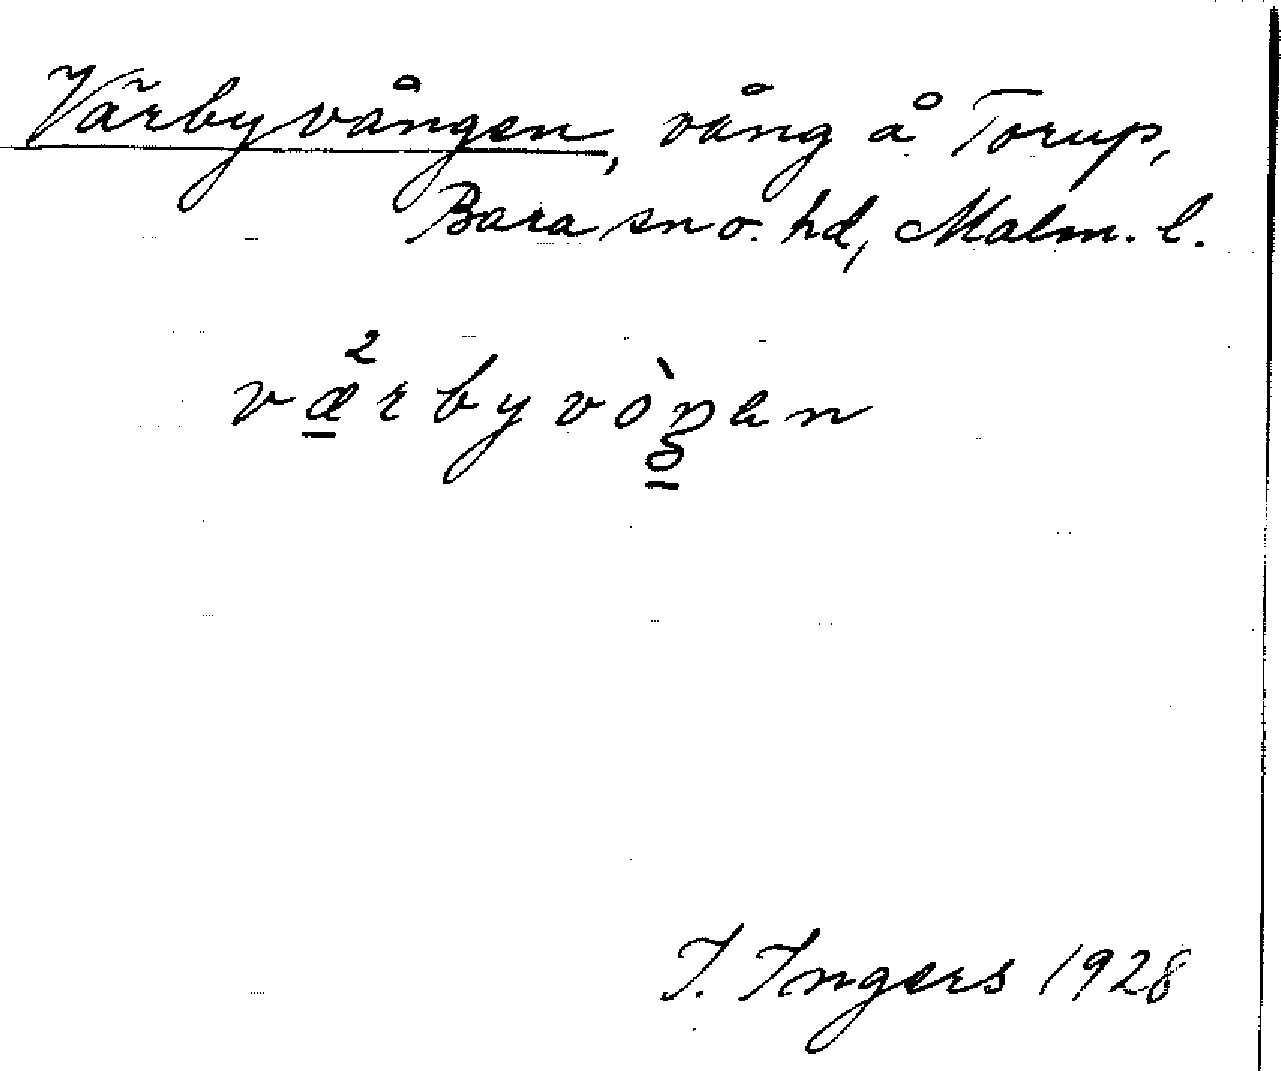 Värbyvången, vång å Torup,
Bara sn o. hd, Malm. l.
væ²rbyvòŋən
I. Ingers 1928